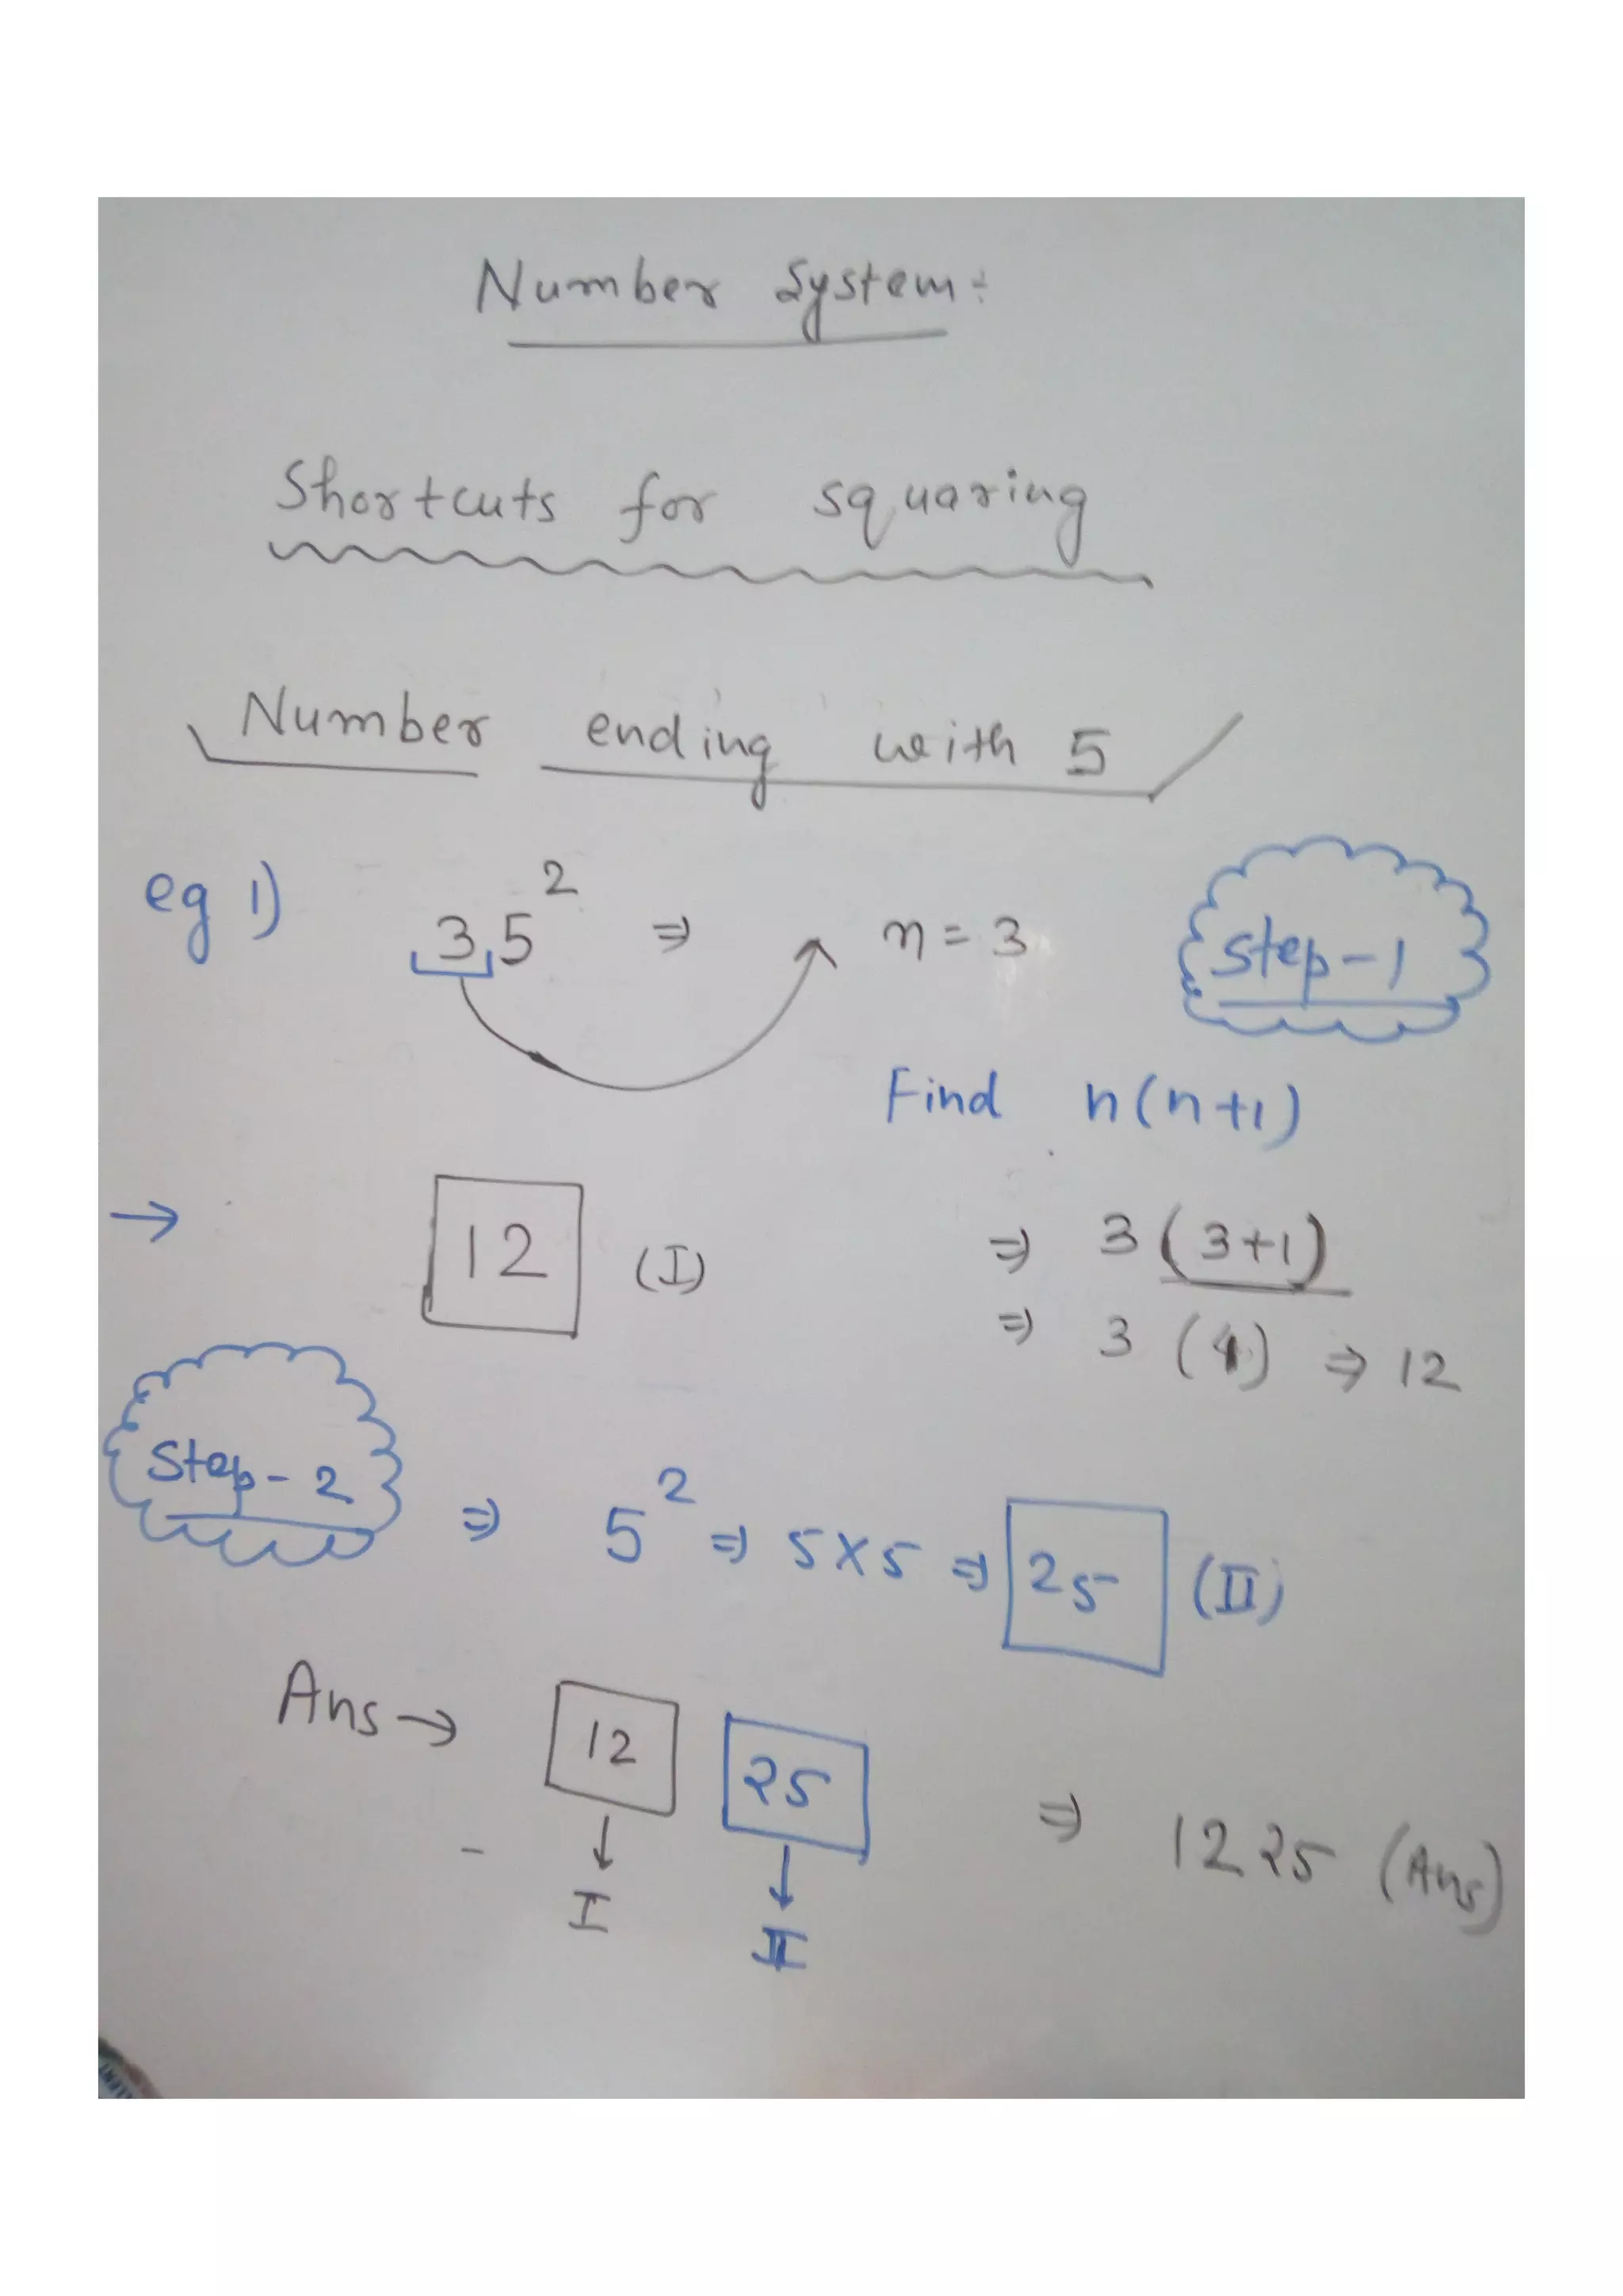 Number System:
Shortcuts for squaring
Number ending with 5
eg 1) 35² ⇒ n = 3 Step-1
Find n(n+1)
→ 12 (I) ⇒ 3(3+1)
⇒ 3(4) ⇒ 12
Step-2 ⇒ 5² ⇒ 5×5 ⇒ 25 (II)
Ans → 12 25 ⇒ 1225 (Ans)
↓ ↓
I II